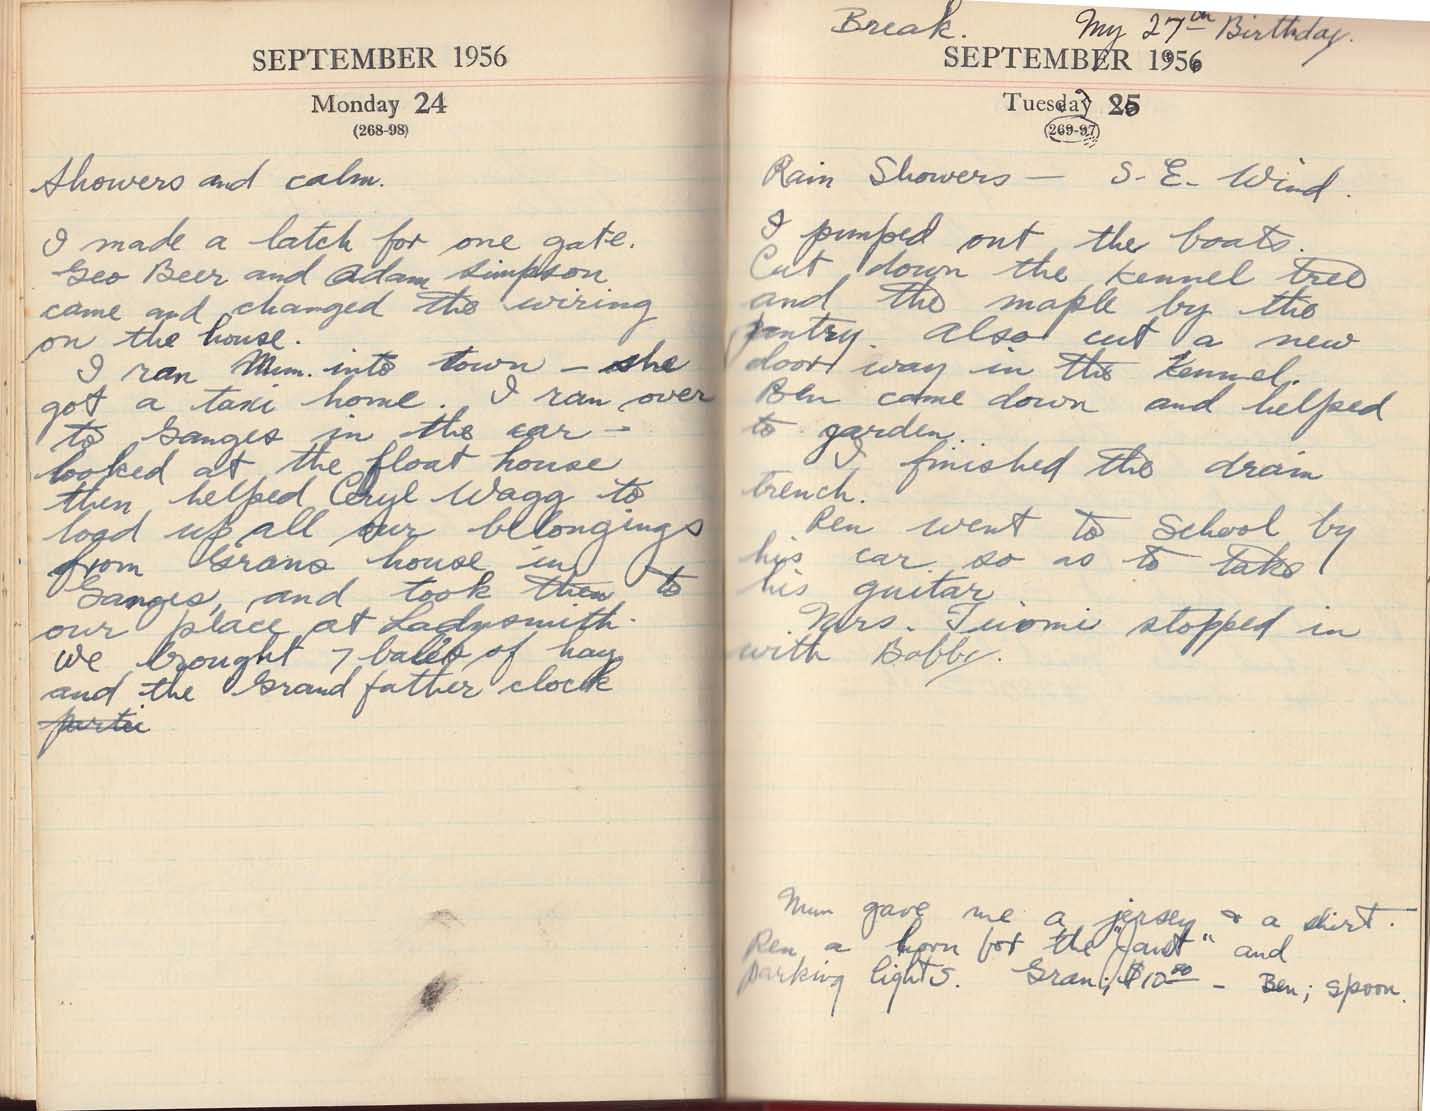 SEPTEMBER 1956
Monday 24
(268-98)
Showers and calm.
I made a latch for one gate.
Geo Beer and Adam Simpson
came and changed the wiring
on the house.
I ran Mum. into town - she
got a taxi home. I ran over
to Ganges in the car -
looked at the float house
then helped Ceryl Wagg to
load up all our belongings
from Grans house in
Ganges, and took them to
our place at Ladysmith.
We brought 7 bales of hay
and the Grand father clock
Break. My 27th Birthday.
SEPTEMBER 1956
Tuesday 25
(269-97)
Rain Showers - S. E. Wind.
I pumped out the boats.
Cut down the kennel tree
and the maple by the
pantry. Also cut a new
door way in the kennel.
Ben came down and helped
to garden.
I finished the drain
trench.
Pen went to School by
his car. so as to take
his guitar
Mrs. stopped in
with Bobby.
Mum gave me a jersey & a shirt.
Pen a horn for the "Aust" and
parking lights. Gran; $10.00 - Ben; spoon.